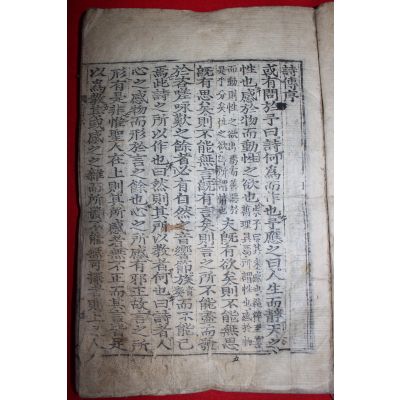 詩傳序
或有問於予曰詩何為而作也予應之曰人生而靜天之
性也感於物而動性之欲也
夫旣有欲矣則不能無思
旣有思矣則不能無言旣有言矣則言之所不能盡而發
於咨嗟咏歎之餘者必有自然之音響節族而不能已
焉此詩之所以作也曰然則其所以教者何也曰詩者人
心之感物而形於言之餘也心之所感有邪正故言之所
形有是非惟聖人在上則其所感者無不正而其言皆足
以爲教其或感之之雜而所發不能無可擇者則上之人